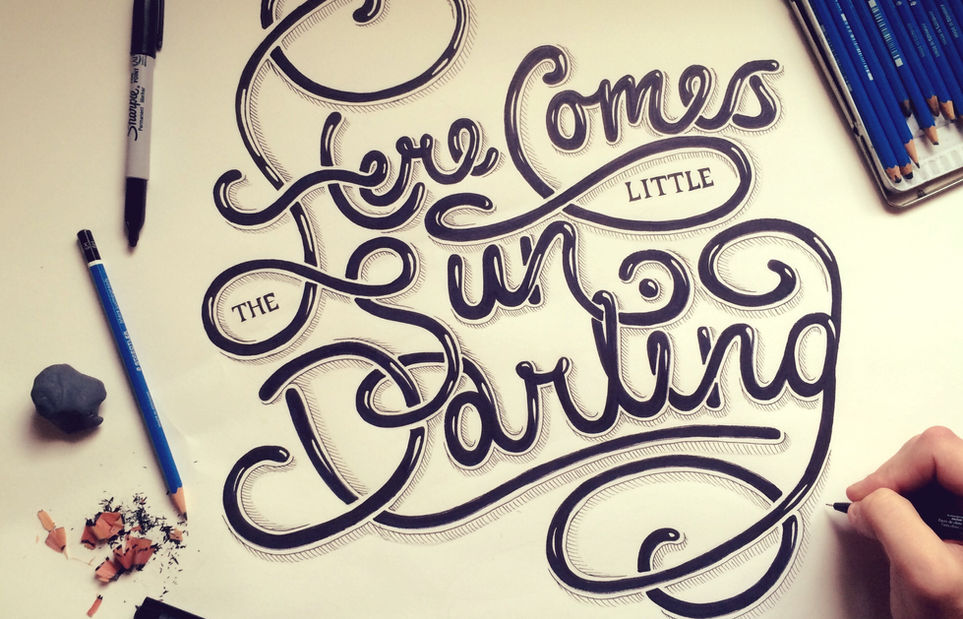 Here Comes
THE Sun LITTLE
Darling
Sharpie